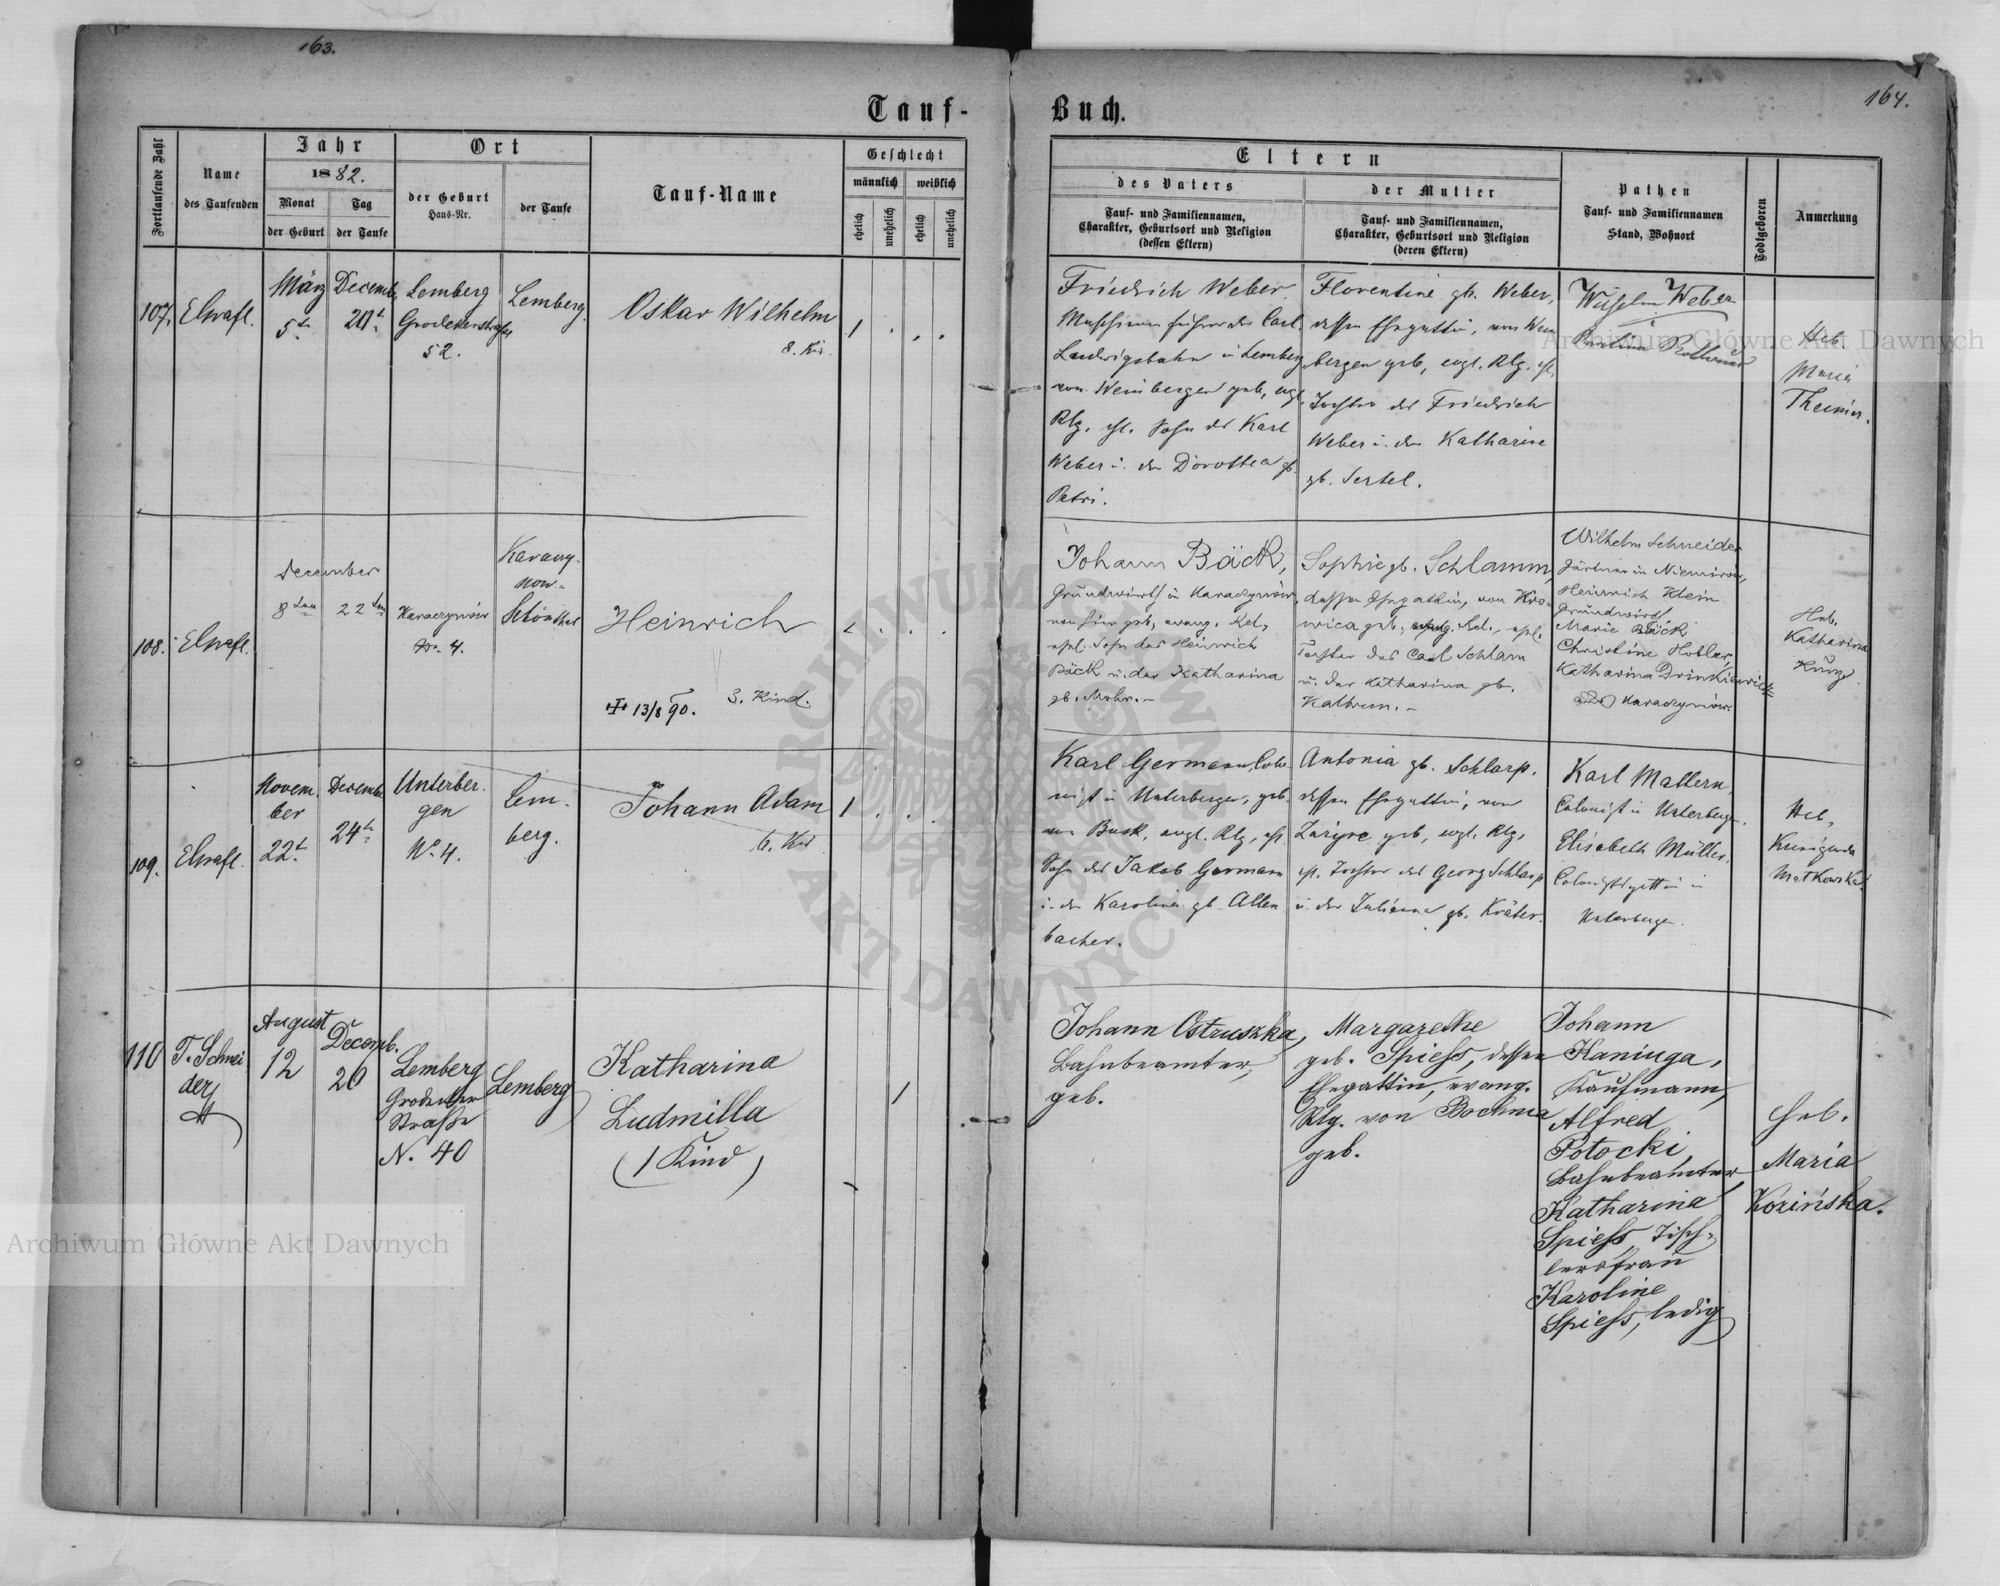 163.
164.
Tauf-
Buch.
Fortlaufende Zahl
Name
des Taufenden
Jahr
1882.
Monat
der Geburt
Tag
der Taufe
Ort
der Geburt
Haus-Nr.
der Taufe
Tauf-Name
Geschlecht
männlich
weiblich
ehelich
unehelich
ehelich
unehelich
Eltern
des Vaters
Tauf- und Familiennamen,
Charakter, Geburtsort und Religion
(dessen Eltern)
der Mutter
Tauf- und Familiennamen,
Charakter, Geburtsort und Religion
(deren Eltern)
Pathen
Tauf- und Familiennamen
Stand, Wohnort
Todtgeboren
Anmerkung
107.
März
5
Decemb.
20
Lemberg
52.
Lemberg.
Oskar Wilhelm
8. Kd.
1
Friedrich Weber
Ludwigsbahn in Lemberg
von Weinbergen geb, evgl.
Rlg. ehl. Sohn des Karl
Weber u. der Dorothea gb.
Petri.
Florentine gb. Weber,
dessen Ehegattin, von Wein
bergen geb, evgl. Rlg. ehl.
Tochter des Friedrich
Weber u. der Katharine
gb. Sertel.
Wilhelm Weber
Heb.
Maria
108.
December
8
22
Karaczynów
4.
Schönthal
Heinrich
3. Kind.
13/8 90.
Johann Bäck,
Grundwirth in Karaczynów,
von hier geb, evang. Rel.,
ehel. Sohn des Heinrich
Bäck u. der Katharina
gb. Mohr.-
Sophie gb. Schlamm,
dessen Ehegattin, von
ehel.
Tochter des Carl Schlam
u. der Katharina gb.
Wilhelm Schneider
Gärtner in Niemirów,
Heinrich Klein
Grundwirth
Marie Bäck
Christine Hobler,
Katharina
Karaczynów.
Heb.
Katharina
Kunz
109.
Novem-
ber
22
Decemb.
24
Unterber-
gen
No. 4.
Lem-
berg.
Johann Adam
6. Kd
1
Karl Germann, Colo-
nist in Unterbergen, geb.
von Busk, evgl. Rlg, ehl.
Sohn des Jakob Germann
u. der Karoline gb. Allen
bacher.
Antonia gb. Schlarp.
dessen Ehegattin, von
geb, evgl. Rlg,
ehl. Tochter des Georg Schlarp
u. der Julianna gb. Kräter.
Karl Mattern,
Colonist in Unterbergen.
Elisabeth Müller.
in
Unterbergen.
Heb,
Kunigunda
Matkowska.
110
T. Schnei
der
August
12
Decemb.
20
Lemberg
Grodecker
Straße
N. 40
Lemberg
Katharina
Ludmilla
(1 Kind)
1
Johann Ostruszka,
Bahnbeamter,
geb.
Margarethe
geb. Spiess, dessen
Ehegattin, evang.
Rlg. von Bochnia
geb.
Johann
Kaniuga,
Kaufmann,
Alfred
Potocki,
Bahnbeamter,
Katharina
Spiess, Tisch-
lersfrau
Karoline
Spiess, ledig
Heb.
Maria
Kozińska.
Archiwum Główne Akt Dawnych
Archiwum Główne Akt Dawnych
ARCHIWUM GŁÓWNE
AKT DAWNYCH